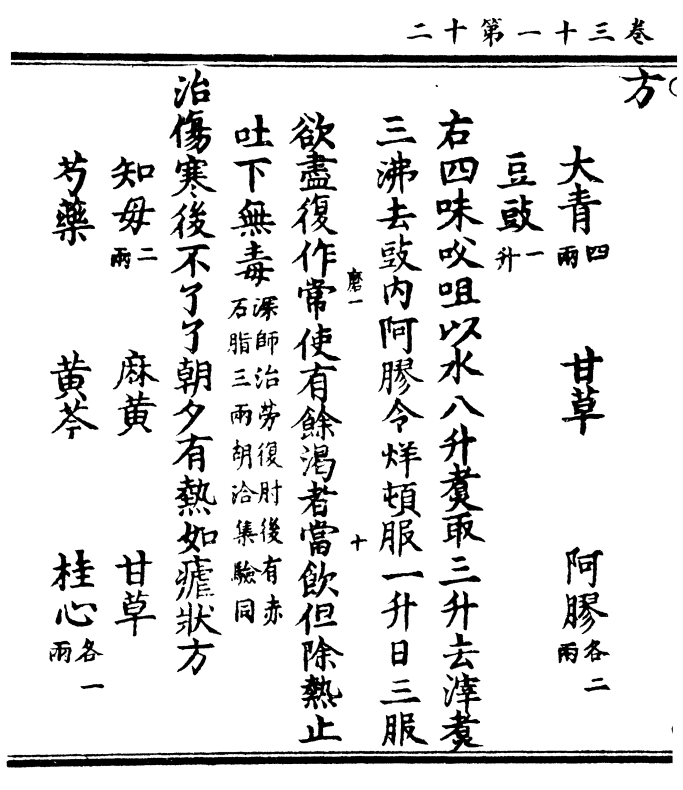 卷三十一第十二
方
大青四兩 甘草 阿膠各二兩
豆豉一升
右四味㕮咀以水八升煑取三升去滓煑
三沸去豉内阿膠令烊頓服一升日三服
磨一 十
欲盡復作常使有餘渴者當飲但除熱止
吐下無毒深師治勞復肘後有赤石脂三兩胡洽集驗同
治傷寒後不了了朝夕有熱如瘧狀方
知母二兩 麻黄 甘草
芍藥 黄芩 桂心各一兩